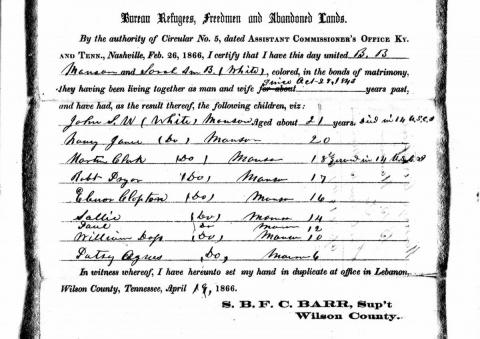 Bureau Refugees, Freedmen and Abandoned Lands.
By the authority of Circular No. 5, dated ASSISTANT COMMISSIONER'S OFFICE KY.
AND TENN., Nashville, Feb. 26, 1866, I certify that I have this day united B. B
Manson and Sarah Ann B. (White), colored, in the bonds of matrimony,
since Oct. 1843
they having been living together as man and wife for about years past,
and have had, as the result thereof, the following children, viz:
John S. W (White) Manson Aged about 21 years. died in 14 U.S.C.I
Nancy Jane (Do) Manson 20
Martin Clark (Do) Manson 18 Served in 14
Robt Pryor (Do) Manson 17
Elenor Clopton Manson 16
Sallie (Do) Manson 14
Paul Do Manson 12
William (Do) Manson 10
Patsy Agnes (Do, Manson 6
In witness whereof, I have hereunto set my hand in duplicate at office in Lebanon,
Wilson County, Tennessee, April 19, 1866.
S. B. F. C. BARR, Sup't
Wilson County.